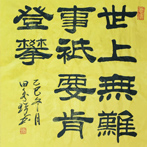 世上無難
事祗要肯
登攀
乙巳年月